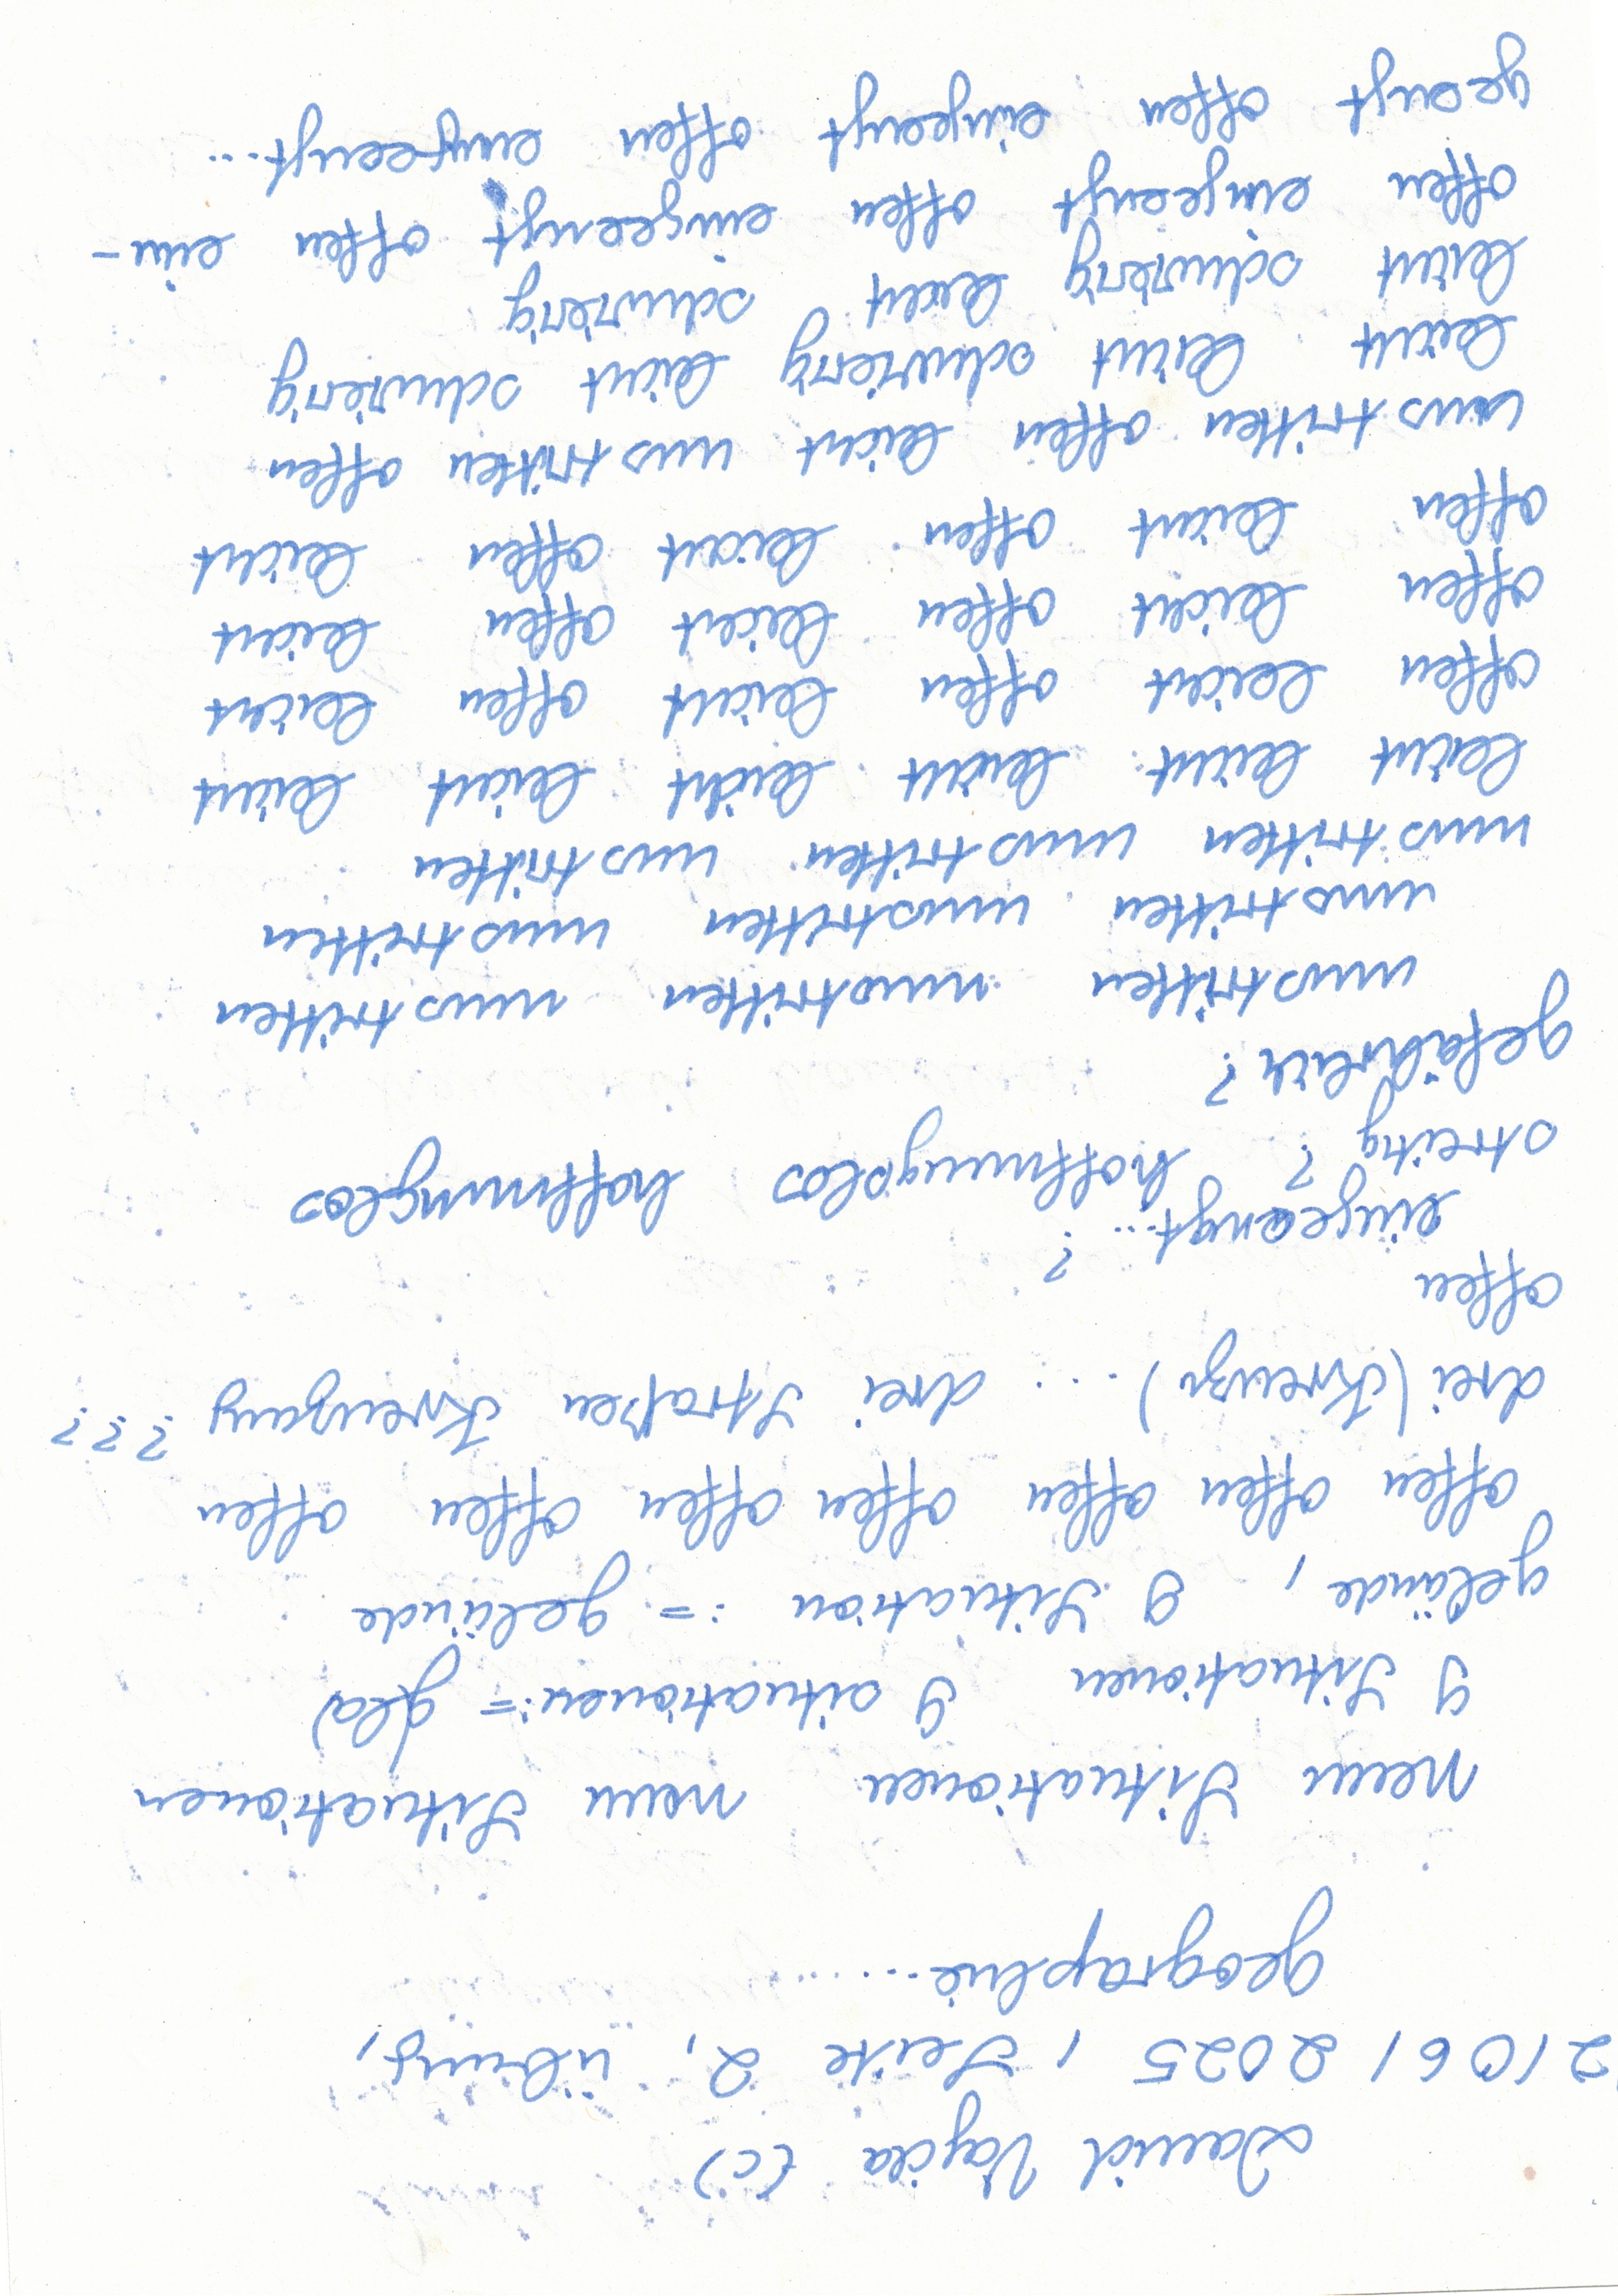 David Vajda (C)
21 06 / 2025, Seite 2, übung,
geographie........
Neun Situationen neun Situationen
9 Situationen 9 situationen:= g(la)
gelände, 9 Situation := gelände
offen offen offen offen offen offen offen
drei (Kreuzg) .... drei Straßen Kreuzung ???
offen
eingeengt...?
streitig? hoffnungslos hoffnungslos
gefährlich?
umstritten umstritten umstritten
umstritten umstritten umstritten
umstritten umstritten umstritten
leicht leicht leicht leicht leicht leicht
offen leicht offen leicht offen leicht
offen leicht offen leicht offen leicht
offen leicht offen leicht offen leicht
umstritten offen leicht umstritten offen
leicht leicht schwierig leicht schwierig
leicht schwierig leicht schwierig
offen eingeengt offen eingeengt offen ein-
geengt offen eingeengt offen eingeengt...